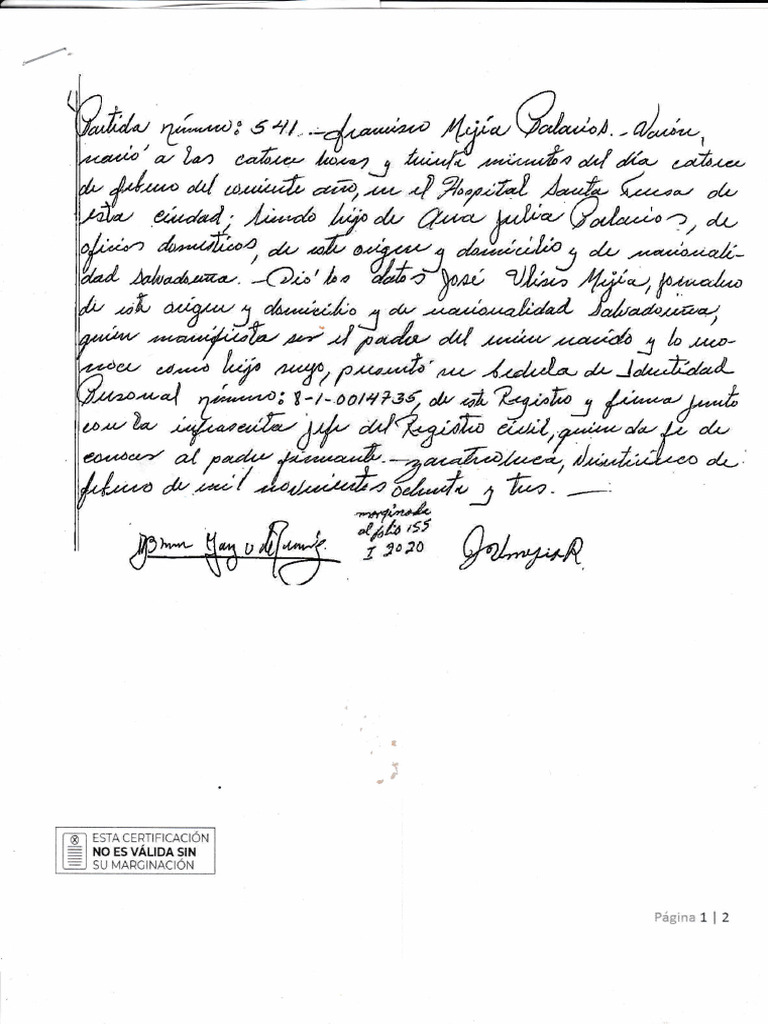 Partida número: 541.—Francisco Mejía Palacios.—Varón,
nació a las catorce horas y treinta minutos del día catorce
de febrero del corriente año, en el Hospital Santa Teresa de
esta ciudad; siendo hijo de Ana Julia Palacios, de
oficios domésticos, de este origen y domicilio y de nacionali-
dad Salvadoreña.—Dió los datos José Ulises Mejía, jornalero
de este origen y domicilio y de nacionalidad Salvadoreña,
quien manifiesta ser el padre del recién nacido y lo reco-
noce como hijo suyo, presentó su Cédula de Identidad
Personal número: 8-1-0014735, de este Registro y firma junto
con la infrascrita jefe del Registro civil, quien da fe de
conocer al padre firmante.—Zacatecoluca, veinticinco de
febrero de mil novecientos ochenta y tres.—
marginada
al folio 155
I 2020
ESTA CERTIFICACIÓN
NO ES VÁLIDA SIN
SU MARGINACIÓN
Página 1 | 2